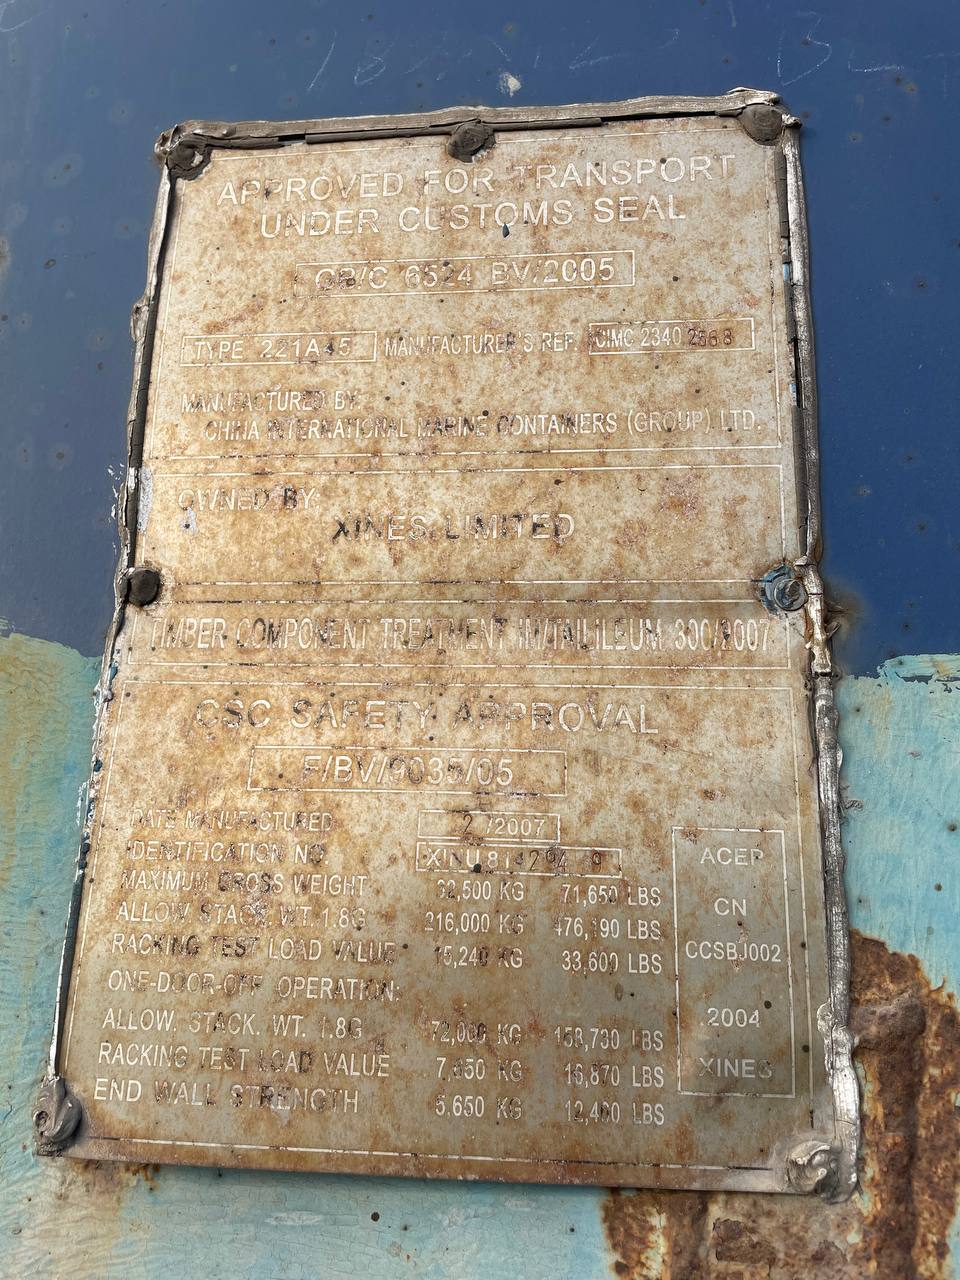 APPROVED FOR TRANSPORT
UNDER CUSTOMS SEAL
GB/C 6524 BV/2005
TYPE 221A45 MANUFACTURER'S REF. CIMC 2340 2568
MANUFACTURED BY:
CHINA INTERNATIONAL MARINE CONTAINERS (GROUP) LTD.
OWNED BY:
XINES LIMITED
TIMBER COMPONENT TREATMENT IM/TAILILEUM 300/2007
CSC SAFETY APPROVAL
F/BV/9035/05
DATE MANUFACTURED 2 /2007
IDENTIFICATION NO. XINU 814294 9
MAXIMUM GROSS WEIGHT 32,500 KG 71,650 LBS
ALLOW. STACK. WT. 1.8G 216,000 KG 476,190 LBS
RACKING TEST LOAD VALUE 15,240 KG 33,600 LBS
ONE-DOOR-OFF OPERATION:
ALLOW. STACK. WT. 1.8G 72,000 KG 158,730 LBS
RACKING TEST LOAD VALUE 7,650 KG 16,870 LBS
END WALL STRENGTH 5,650 KG 12,460 LBS
ACEP
CN
CCSBJ002
2004
XINES